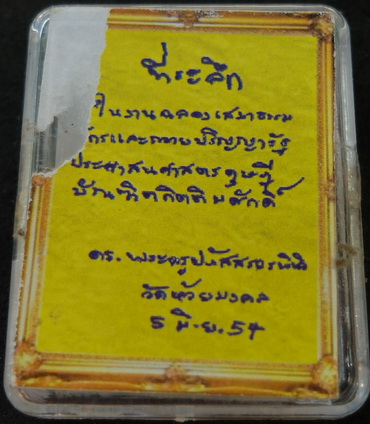 ที่ระลึก
ในงานฉลองเสมาธรรม
จักรและถวายปริญญารัฐ
ประศาสนศาสตรดุษฎี
บัณฑิตกิตติมศักดิ์
ดร.พระครู
วัดห้วยมงคล
5 มิ.ย.54